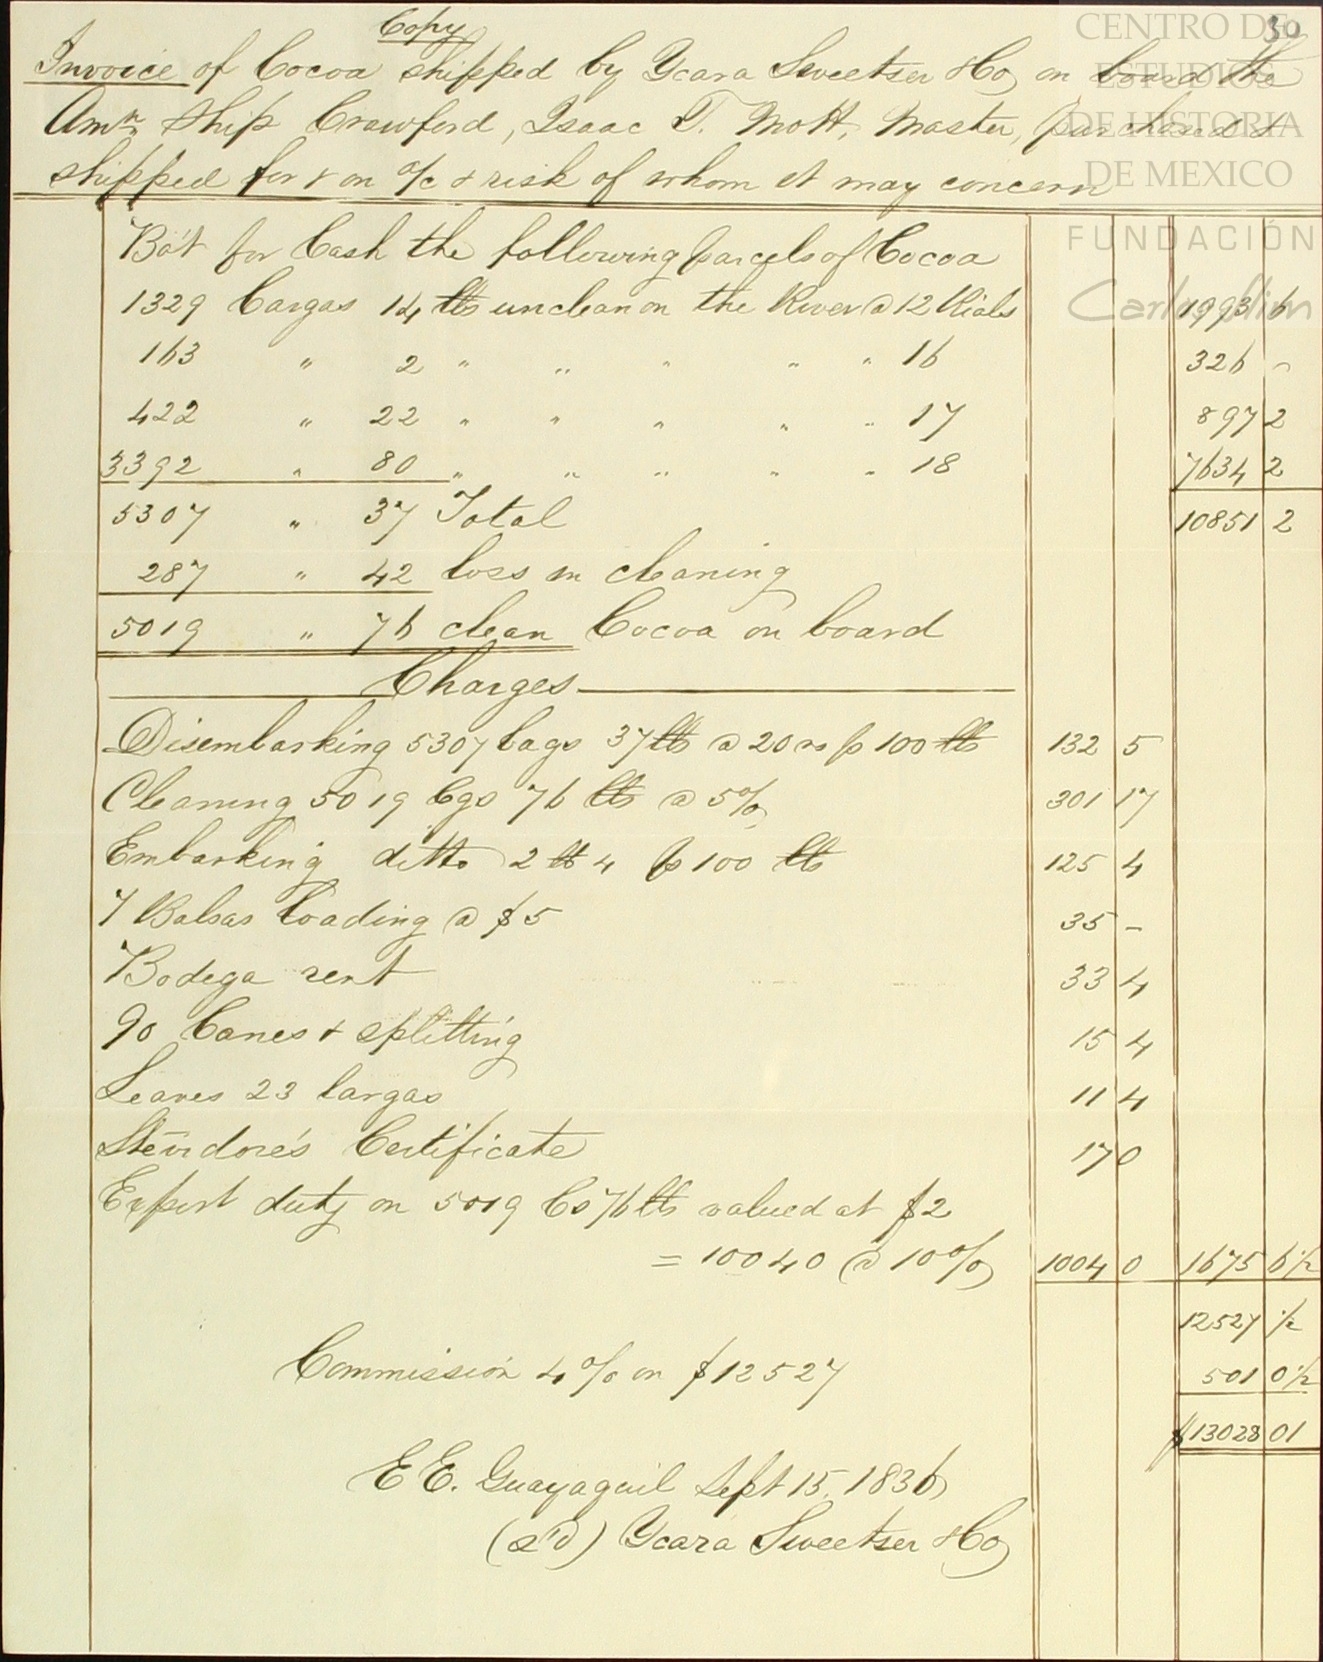 Copy
30
Invoice of Cocoa shipped by Ycaza Sweetser & Co on board the
Amn Ship Crawford, Isaac T. Mott, Master, purchased &
shipped for & on a/c & risk of whom it may concern
Bo't for Cash the following parcels of Cocoa
1329 Cargas 14 lbs unclean on the River @ 12 Rials 1993 6
163 " 2 " " " " " 16 326 -
422 " 22 " " " " " 17 897 2
3392 " 80 " " " " " 18 7634 2
5307 " 37 Total 10851 2
287 " 42 loss in cleaning
5019 " 76 clean Cocoa on board
Charges
Disembarking 5307 Cargs 37 lbs @ 20 rs p 100 lbs 132 5
Cleaning 5019 Cgs 76 lbs @ 5% 301 17
Embarking ditto 2 lb 4 p 100 lbs 125 4
7 Balsas loading @ $5 35 -
Bodega rent 33 4
90 Canes & splitting 15 4
Leaves 23 Cargas 11 4
Stevidore's Certificate 17 0
Export duty on 5019 Cs 76 lbs valued at $2
= 10040 @ 10% 1004 0 1675 6 1/2
12527 1/2
Commission 4% on $12527 501 0 1/2
$13028 01
E E. Guayaquil Sept 15, 1836
(s'd) Ycaza Sweetser & Co
CENTRO DE
ESTUDIOS
DE HISTORIA
DE MEXICO
FUNDACIÓN
Carlos Slim